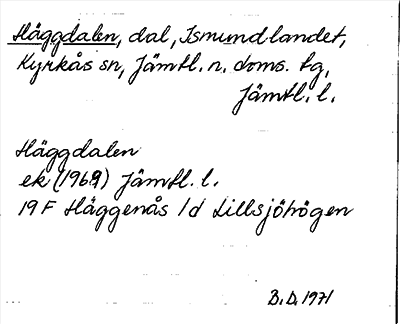 Häggdalen, dal, Ismundlandet,
Kyrkås sn, Jämtl. n. doms. tg,
Jämtl. l.
Häggdalen
ek (1969) Jämtl. l.
19F Häggenås 1d Lillsjöhögen
B.D. 1971